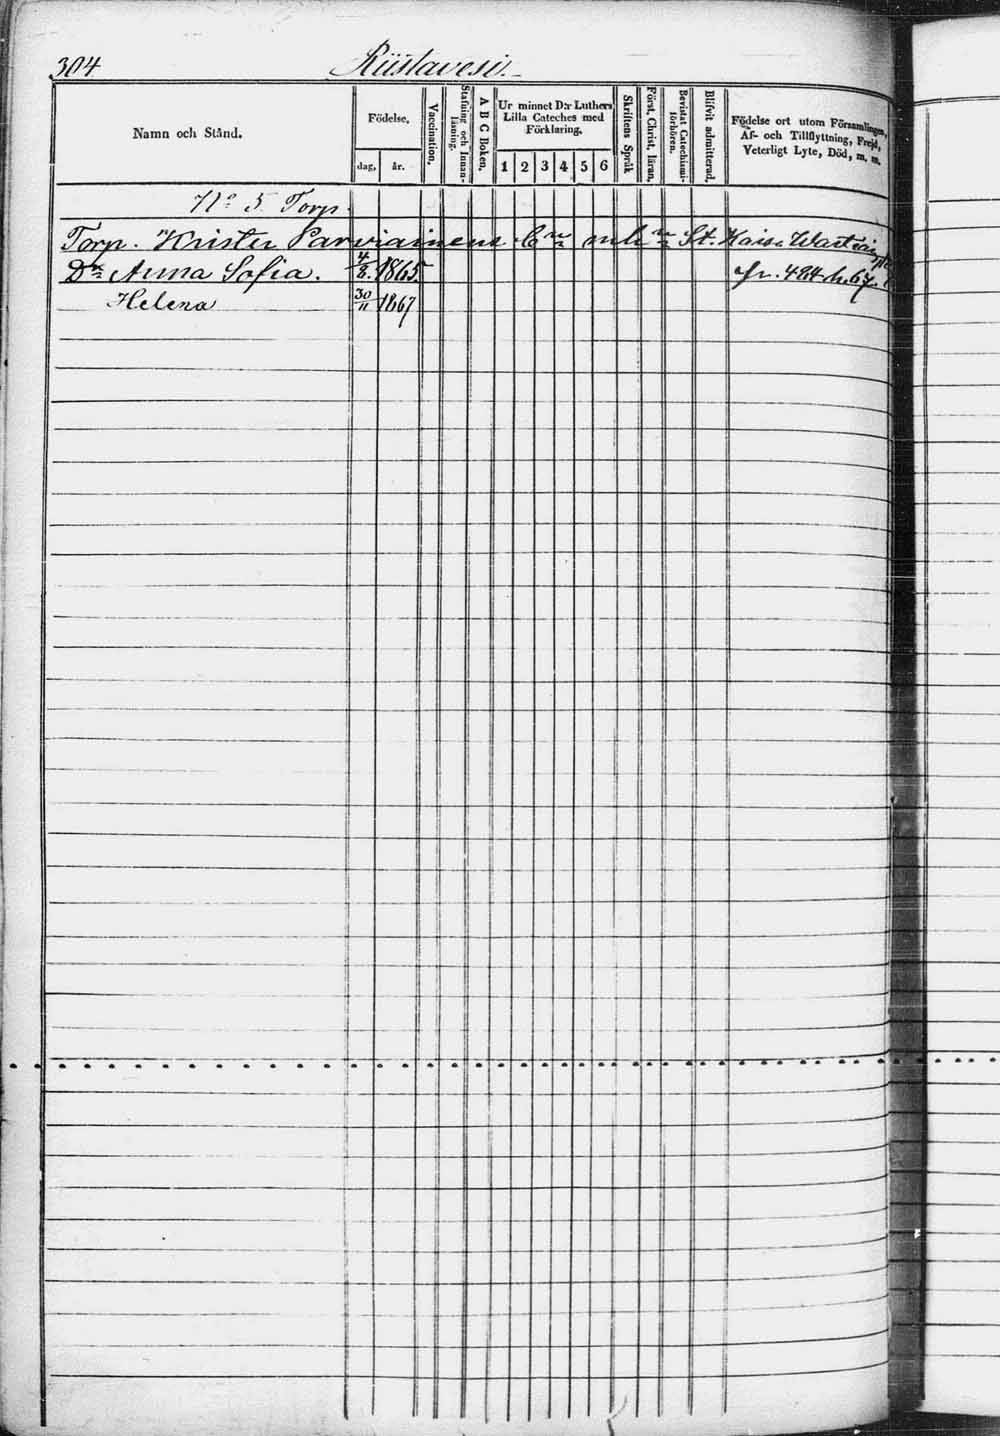 304 Riistavesi.
Namn och Stånd.
Födelse.
dag.
år.
Vaccination.
Stafning och Innan-
läsning.
A B C Boken.
Ur minnet D:r Luthers
Lilla Cateches med
Förklaring.
1 2 3 4 5 6
Skriftens Språk
Först. Christ. läran.
Bevistat Catechismi-
förhören.
Blifvit admitterad.
Födelse ort utom Församlingen,
Af- och Tillflyttning, Frejd,
Veterligt Lyte, Död, m. m.
No 5 Torp.
Torp. Krister Parviainens och St. Kaisa
Dr Anna Sofia. 4/8. 1865. fr. 484. h. 67.
Helena 30/11 1867